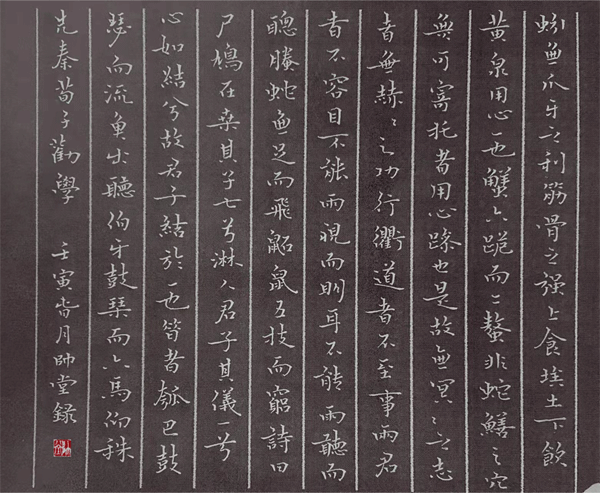 蚓無爪牙之利筋骨之强上食埃土下飲
黄泉用心一也蟹六跪而二螯非蛇鱔之穴
無可寄托者用心躁也是故無冥〻之志
者無赫〻之功行衢道者不至事兩君
者不容目不能兩視而明耳不能兩聽而
聰螣蛇無足而飛鼫鼠五技而窮詩曰
尸鳩在桑其子七兮淑人君子其儀一兮
心如結兮故君子結於一也昔者瓠巴鼓
瑟而流魚出聽伯牙鼓琴而六馬仰秣
先秦荀子勸學 壬寅月帥堂録